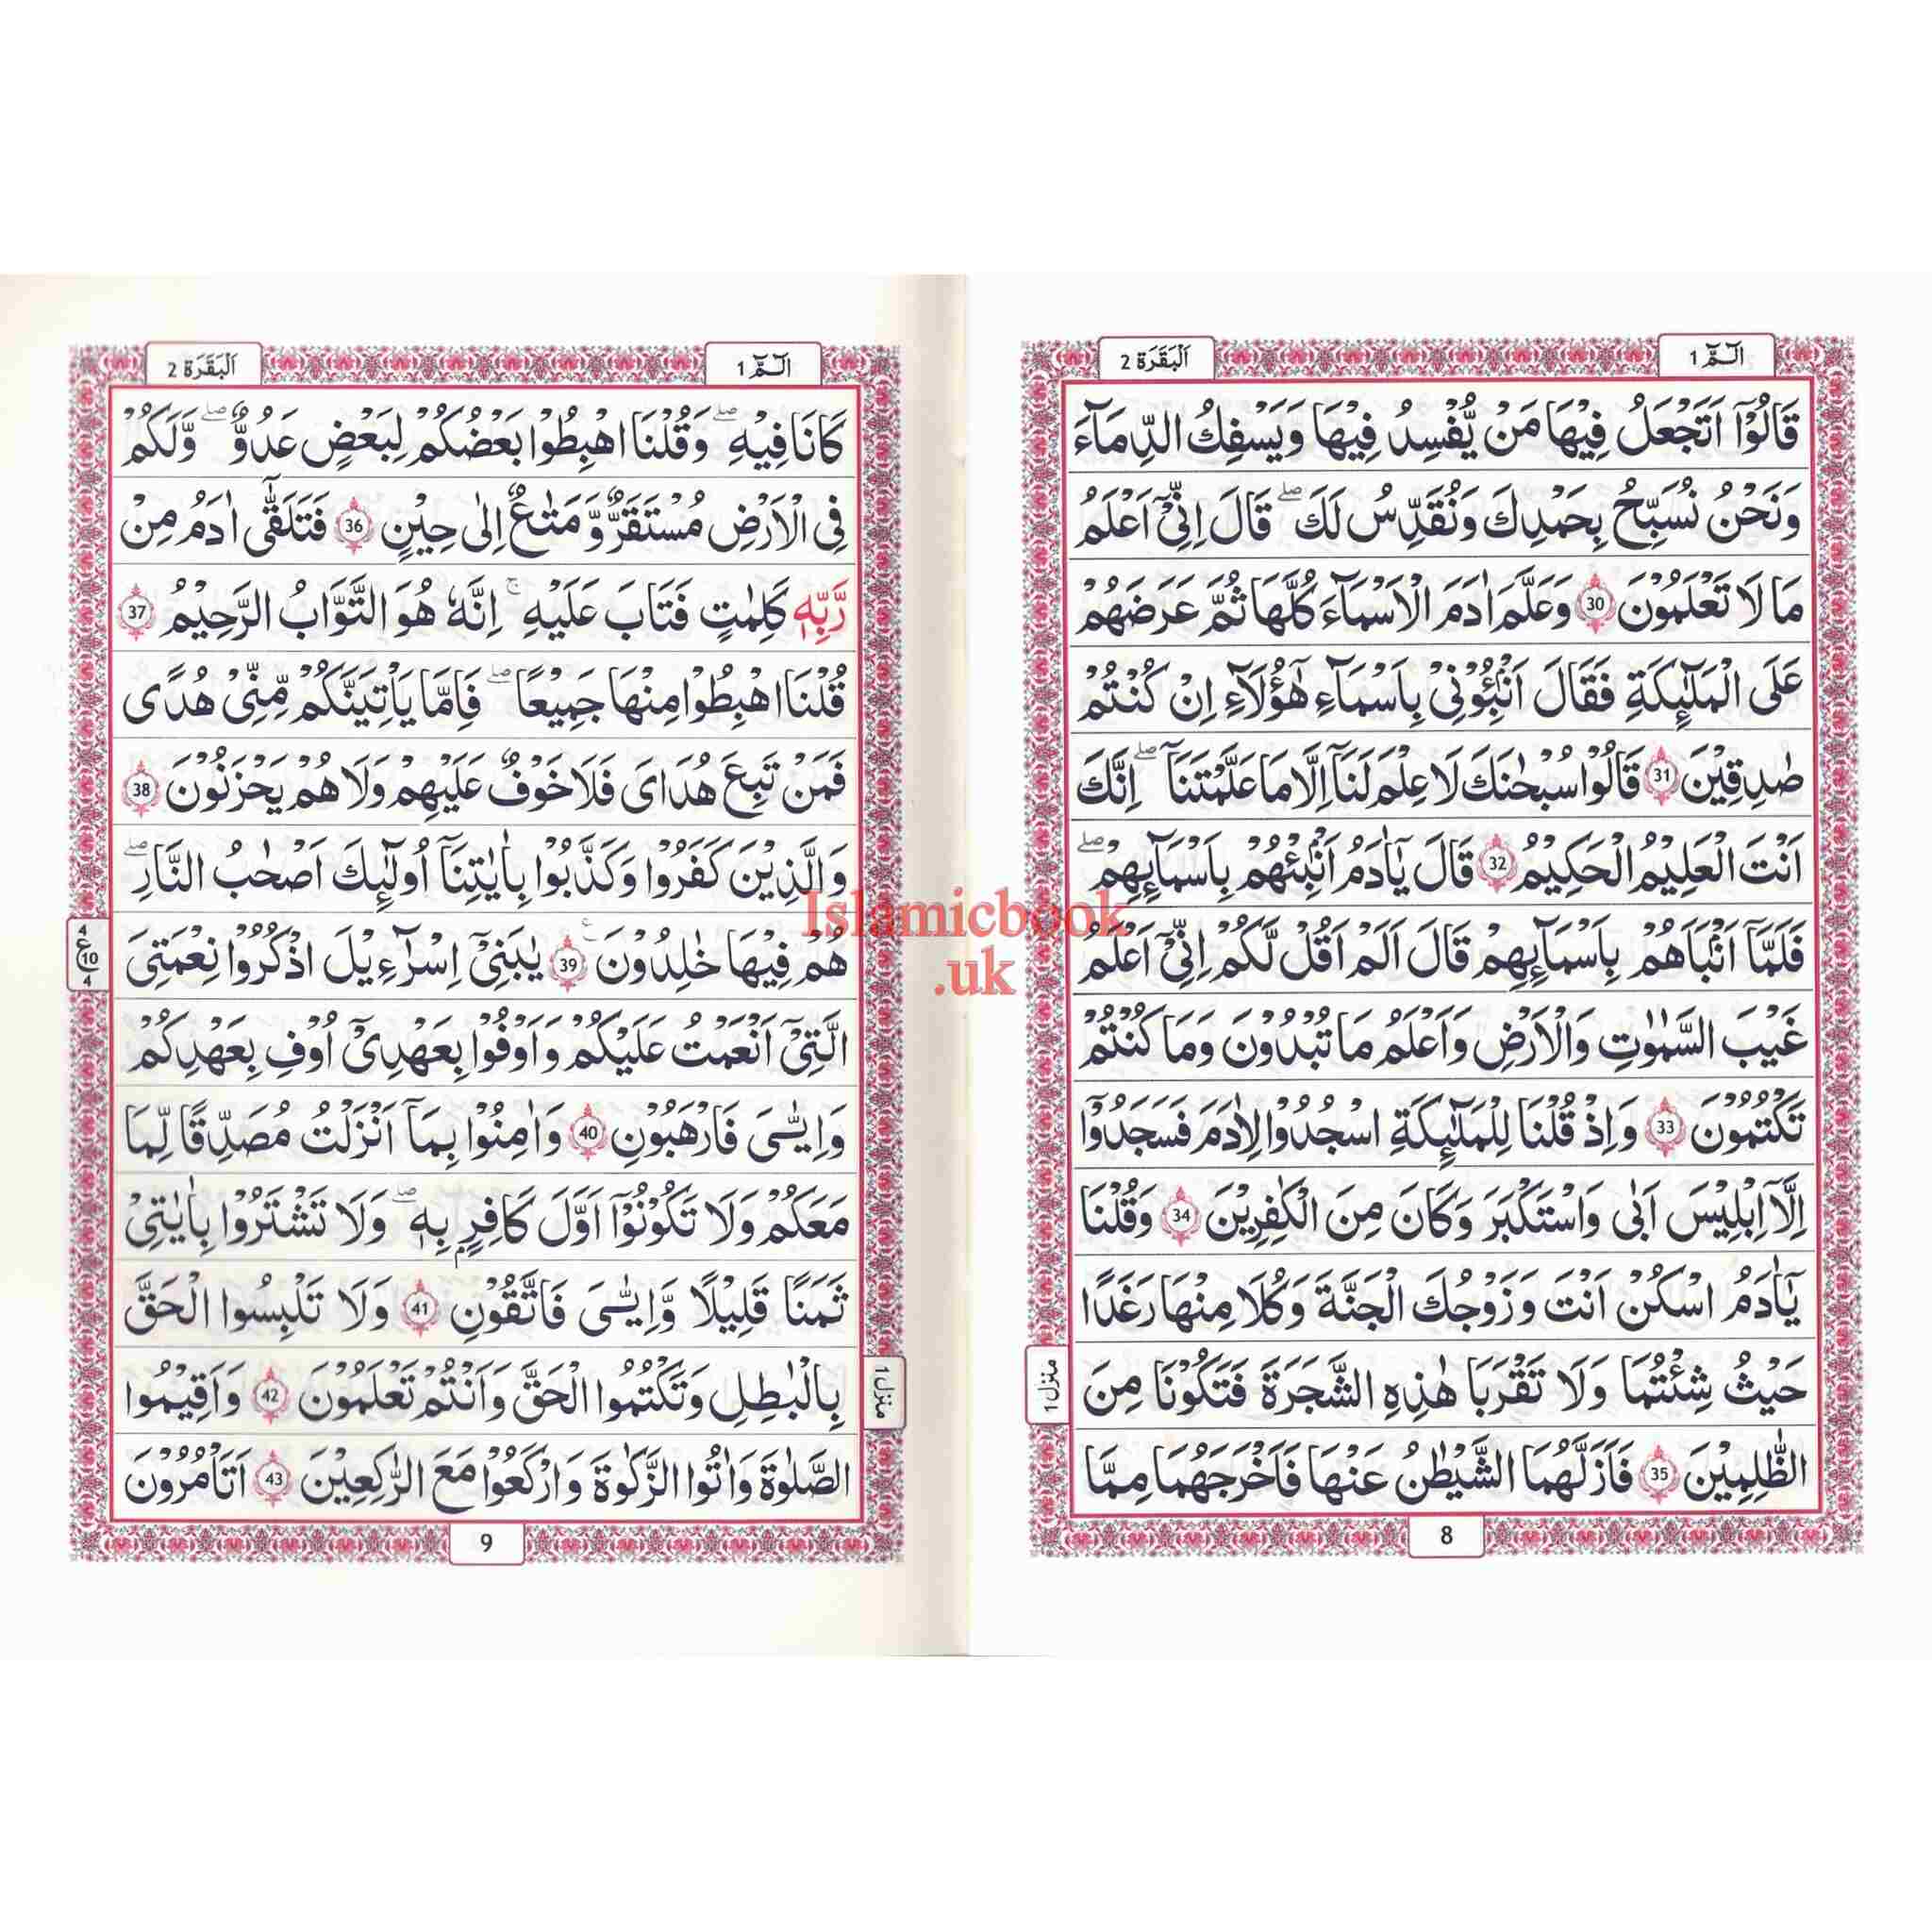 الٓمّٓ 1
اَلْبَقَرَة 2
قَالُوْٓا اَتَجْعَلُ فِيْهَا مَنْ يُّفْسِدُ فِيْهَا وَيَسْفِكُ الدِّمَآءَ
وَنَحْنُ نُسَبِّحُ بِحَمْدِكَ وَنُقَدِّسُ لَكَ ؕ قَالَ اِنِّيْٓ اَعْلَمُ
مَا لَا تَعْلَمُوْنَ 30 وَعَلَّمَ اٰدَمَ الْاَسْمَآءَ كُلَّهَا ثُمَّ عَرَضَهُمْ
عَلَى الْمَلٰٓئِكَةِ فَقَالَ اَنْۢبِـُٔوْنِيْ بِاَسْمَآءِ هٰٓؤُلَآءِ اِنْ كُنْتُمْ
صٰدِقِيْنَ 31 قَالُوْا سُبْحٰنَكَ لَا عِلْمَ لَنَآ اِلَّا مَا عَلَّمْتَنَا ۖ اِنَّكَ
اَنْتَ الْعَلِيْمُ الْحَكِيْمُ 32 قَالَ يٰٓاٰدَمُ اَنْۢبِئْهُمْ بِاَسْمَآئِهِمْ ۖ
فَلَمَّآ اَنْۢبَاَهُمْ بِاَسْمَآئِهِمْ قَالَ اَلَمْ اَقُلْ لَّكُمْ اِنِّيْٓ اَعْلَمُ
غَيْبَ السَّمٰوٰتِ وَالْاَرْضِ وَاَعْلَمُ مَا تُبْدُوْنَ وَمَا كُنْتُمْ
تَكْتُمُوْنَ 33 وَاِذْ قُلْنَا لِلْمَلٰٓئِكَةِ اسْجُدُوْا لِاٰدَمَ فَسَجَدُوْٓا
اِلَّآ اِبْلِيْسَ اَبٰى وَاسْتَكْبَرَ وَكَانَ مِنَ الْكٰفِرِيْنَ 34 وَقُلْنَا
يٰٓاٰدَمُ اسْكُنْ اَنْتَ وَزَوْجُكَ الْجَنَّةَ وَكُلَا مِنْهَا رَغَدًا
حَيْثُ شِئْتُمَا وَلَا تَقْرَبَا هٰذِهِ الشَّجَرَةَ فَتَكُوْنَا مِنَ
الظّٰلِمِيْنَ 35 فَاَزَلَّهُمَا الشَّيْطٰنُ عَنْهَا فَاَخْرَجَهُمَا مِمَّا
منزل 1
8
الٓمّٓ 1
اَلْبَقَرَة 2
كَانَا فِيْهِ ۖ وَقُلْنَا اهْبِطُوْا بَعْضُكُمْ لِبَعْضٍ عَدُوٌّ ۖ وَلَكُمْ
فِي الْاَرْضِ مُسْتَقَرٌّ وَّمَتٰعٌ اِلٰى حِيْنٍ 36 فَتَلَقّٰٓى اٰدَمُ مِنْ
رَّبِّهٖ كَلِمٰتٍ فَتَابَ عَلَيْهِ ۚ اِنَّهٗ هُوَ التَّوَّابُ الرَّحِيْمُ 37
قُلْنَا اهْبِطُوْا مِنْهَا جَمِيْعًا ۖ فَاِمَّا يَاْتِيَنَّكُمْ مِّنِّيْ هُدًى
فَمَنْ تَبِعَ هُدَايَ فَلَا خَوْفٌ عَلَيْهِمْ وَلَا هُمْ يَحْزَنُوْنَ 38
وَالَّذِيْنَ كَفَرُوْا وَكَذَّبُوْا بِاٰيٰتِنَآ اُولٰٓئِكَ اَصْحٰبُ النَّارِ ۖ
هُمْ فِيْهَا خٰلِدُوْنَ ع 39 يٰبَنِيْٓ اِسْرَآءِيْلَ اذْكُرُوْا نِعْمَتِيَ
الَّتِيْٓ اَنْعَمْتُ عَلَيْكُمْ وَاَوْفُوْا بِعَهْدِيْٓ اُوْفِ بِعَهْدِكُمْ
وَاِيَّٰيَ فَارْهَبُوْنِ 40 وَاٰمِنُوْا بِمَآ اَنْزَلْتُ مُصَدِّقًا لِّمَا
مَعَكُمْ وَلَا تَكُوْنُوْٓا اَوَّلَ كَافِرٍۢ بِهٖ ۖ وَلَا تَشْتَرُوْا بِاٰيٰتِيْ
ثَمَنًا قَلِيْلًا وَّاِيَّٰيَ فَاتَّقُوْنِ 41 وَلَا تَلْبِسُوا الْحَقَّ
بِالْبٰطِلِ وَتَكْتُمُوا الْحَقَّ وَاَنْتُمْ تَعْلَمُوْنَ 42 وَاَقِيْمُوا
الصَّلٰوةَ وَاٰتُوا الزَّكٰوةَ وَارْكَعُوْا مَعَ الرّٰكِعِيْنَ 43 اَتَاْمُرُوْنَ
4
ع 10
4
منزل 1
9
Islamicbook
.uk